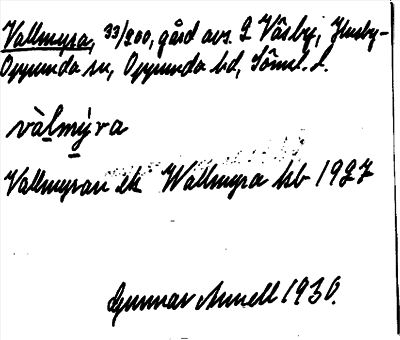 Vallmyra, 33/200, gård avs. f. Väsby, Husby-
Oppunda sn, Oppunda hd, Söml. l.
vàlmýra
Vallmyran ek Wallmyra kb 1927
Gunnar Annell 1930.